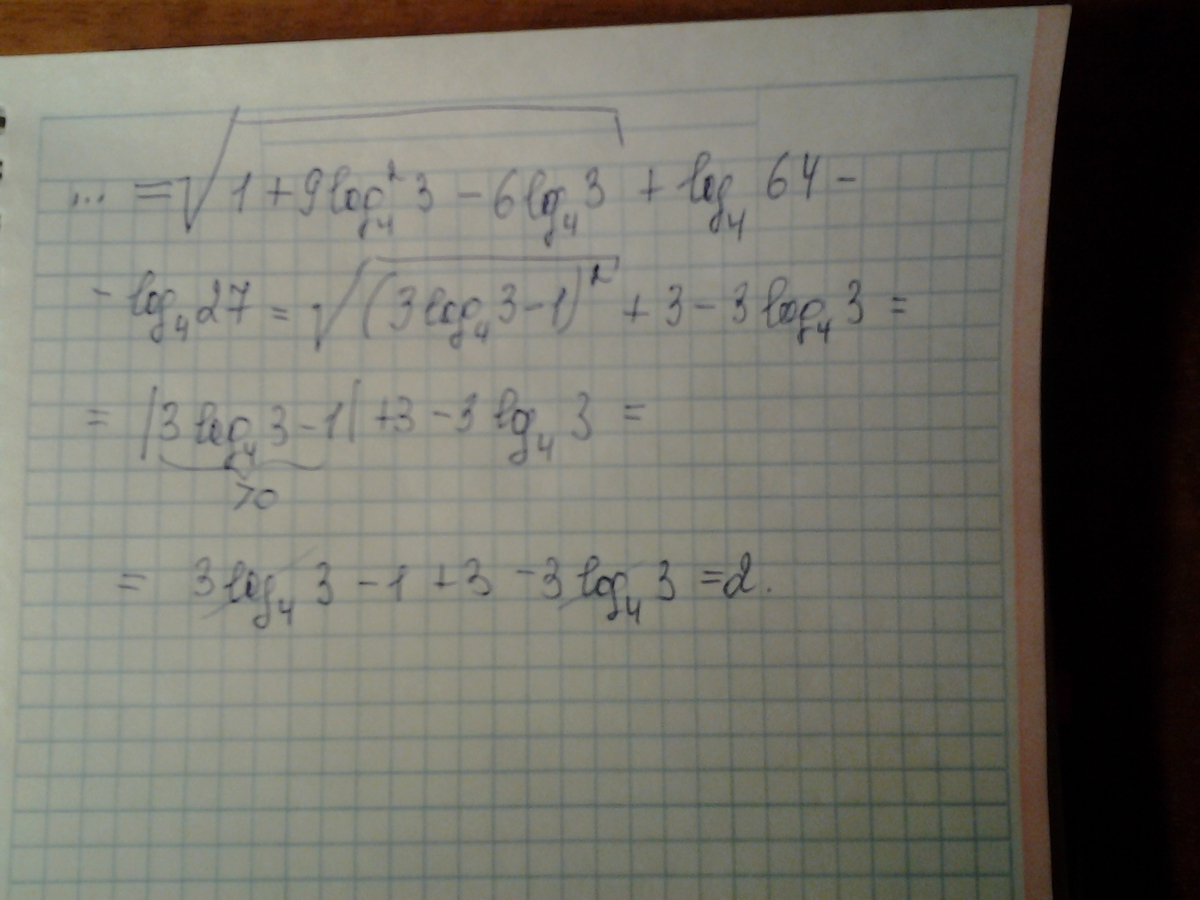 ... = √(1 + 9log₄² 3 − 6log₄ 3) + log₄ 64 −
− log₄ 27 = √((3log₄ 3 − 1)²) + 3 − 3log₄ 3 =
= |3log₄ 3 − 1| + 3 − 3log₄ 3 =
>0
= 3log₄ 3 − 1 + 3 − 3log₄ 3 = 2.